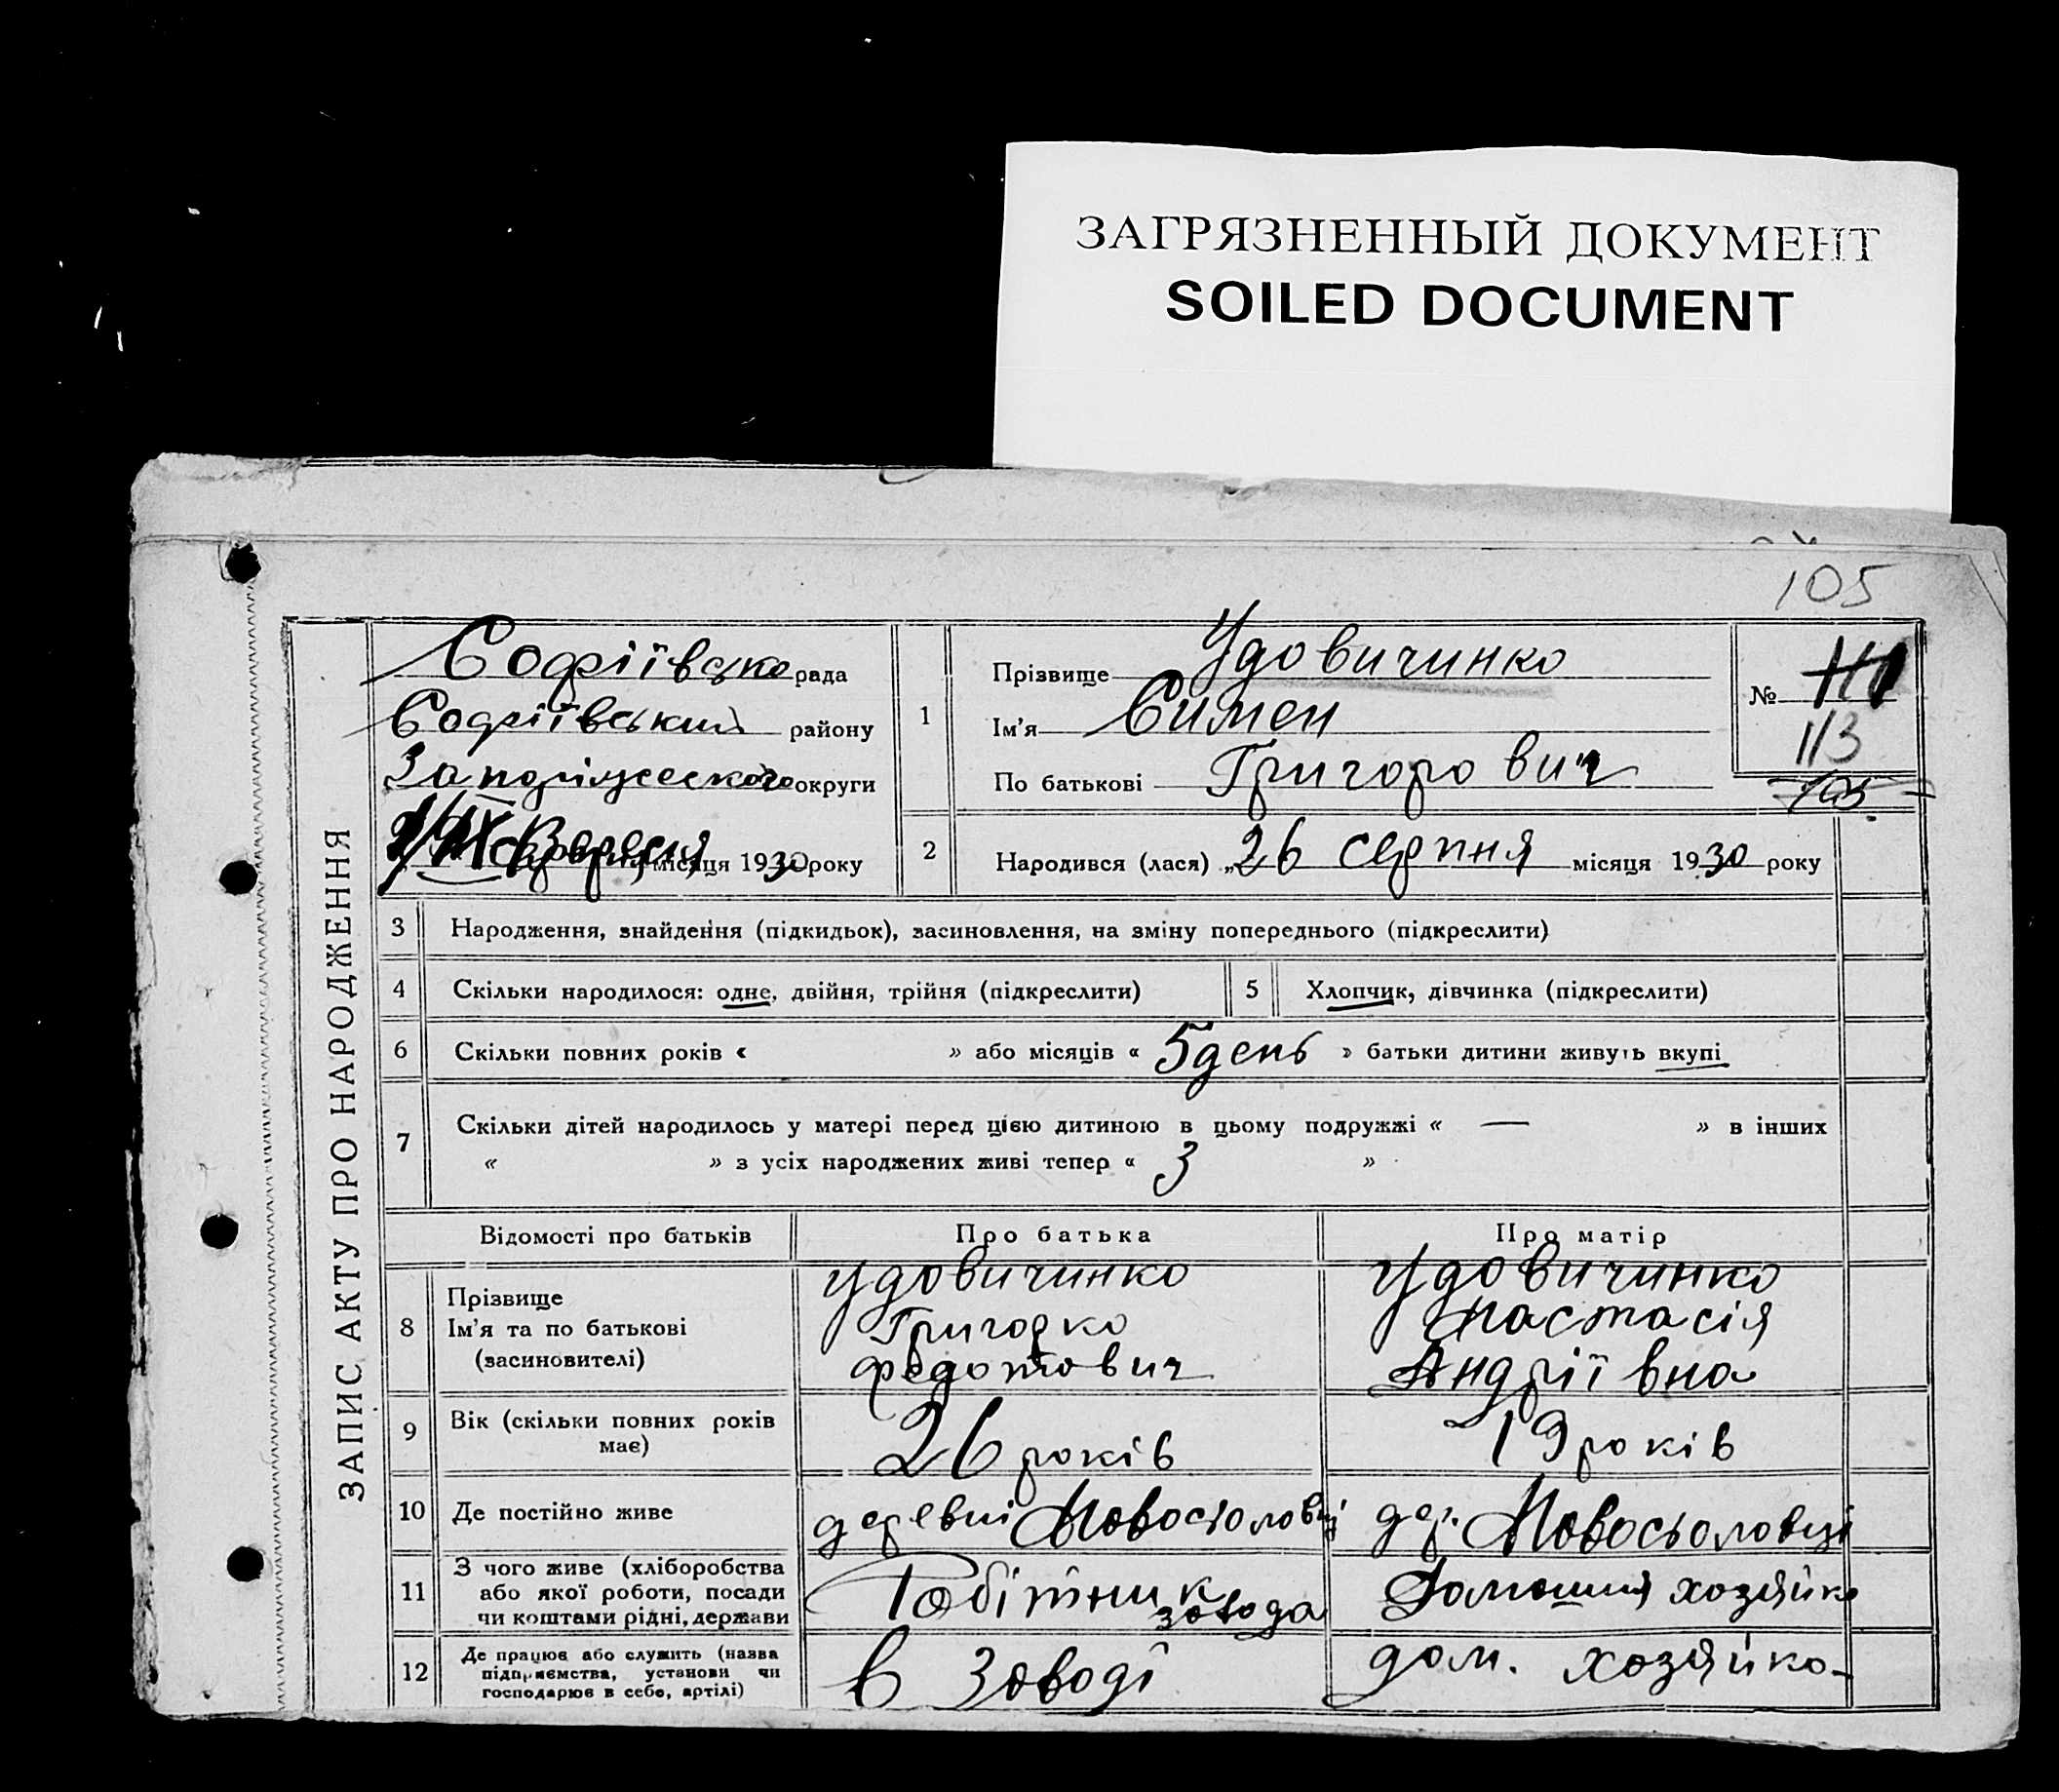 ЗАГРЯЗНЕННЫЙ ДОКУМЕНТ
SOILED DOCUMENT
105
ЗАПИС АКТУ ПРО НАРОДЖЕННЯ
Софіївська рада
Софіївський району
округи
Вересня місяця 1930 року
1
Прізвище Удовичинко
Ім'я Симен
По батькові Григорович
№
113
105
2 Народився (лася) „26 серпня місяця 1930 року
3 Народження, знайдення (підкидьок), засиновлення, на зміну попереднього (підкреслити)
4 Скільки народилося: одне, двійня, трійня (підкреслити) 5 Хлопчик, дівчинка (підкреслити)
6 Скільки повних років « » або місяців « 5 день » батьки дитини живуть вкупі
7 Скільки дітей народилось у матері перед цією дитиною в цьому подружжі « — » в інших
« » з усіх народжених живі тепер « 3 »
Відомості про батьків Про батька Про матір
8 Прізвище
Ім'я та по батькові
(засиновителі)
Удовичинко
Григорко
Федотович
Удовичинко
Настасія
Андріївна
9 Вік (скільки повних років
має)
26 років
19 років
10 Де постійно живе деревні Новосьоловці дер. Новосьоловці
11 З чого живе (хліборобства
або якої роботи, посади
чи коштами рідні, держави
Робітник
завода
Домашня хозяйка
12 Де працює або служить (назва
підприємства, установи чи
господарює в себе, артілі)
в Заводі
дом. хозяйка